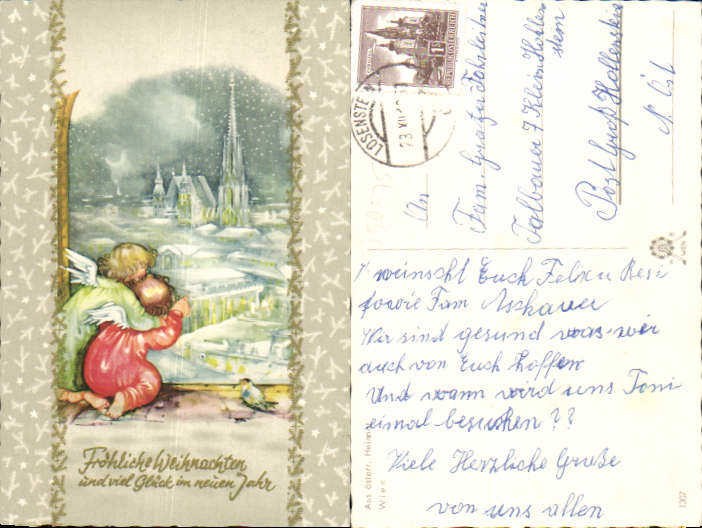 Fröhliche Weihnachten
und viel Glück im neuen Jahr
LOSENSTE
23.XII
REPUBLIK ÖSTERREICH
An
Fam.
Talbauer 7 Klein
Post Groß Hollenstein
N. Öst
wünscht Euch Felix u Resi
sowie Fam Aschauer
Wir sind gesund was wir
auch von Euch hoffen
Und wann wird uns Toni
eimal besuchen ??
Viele Herzliche Grüße
von uns allen
Aus österr. Heimat
Wien
1307